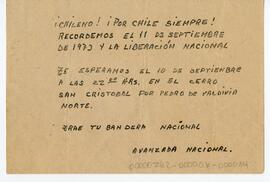 ¡CHILENO! ¡POR CHILE SIEMPRE!
RECORDEMOS EL 11 DE SEPTIEMBRE
DE 1973 Y LA LIBERACIÓN NACIONAL
TE ESPERAMOS EL 10 DE SEPTIEMBRE
A LAS 22 HRS. EN EL CERRO
SAN CRISTOBAL POR PEDRO DE VALDIVIA
NORTE.
TRAE TU BANDERA NACIONAL
AVANZADA NACIONAL.